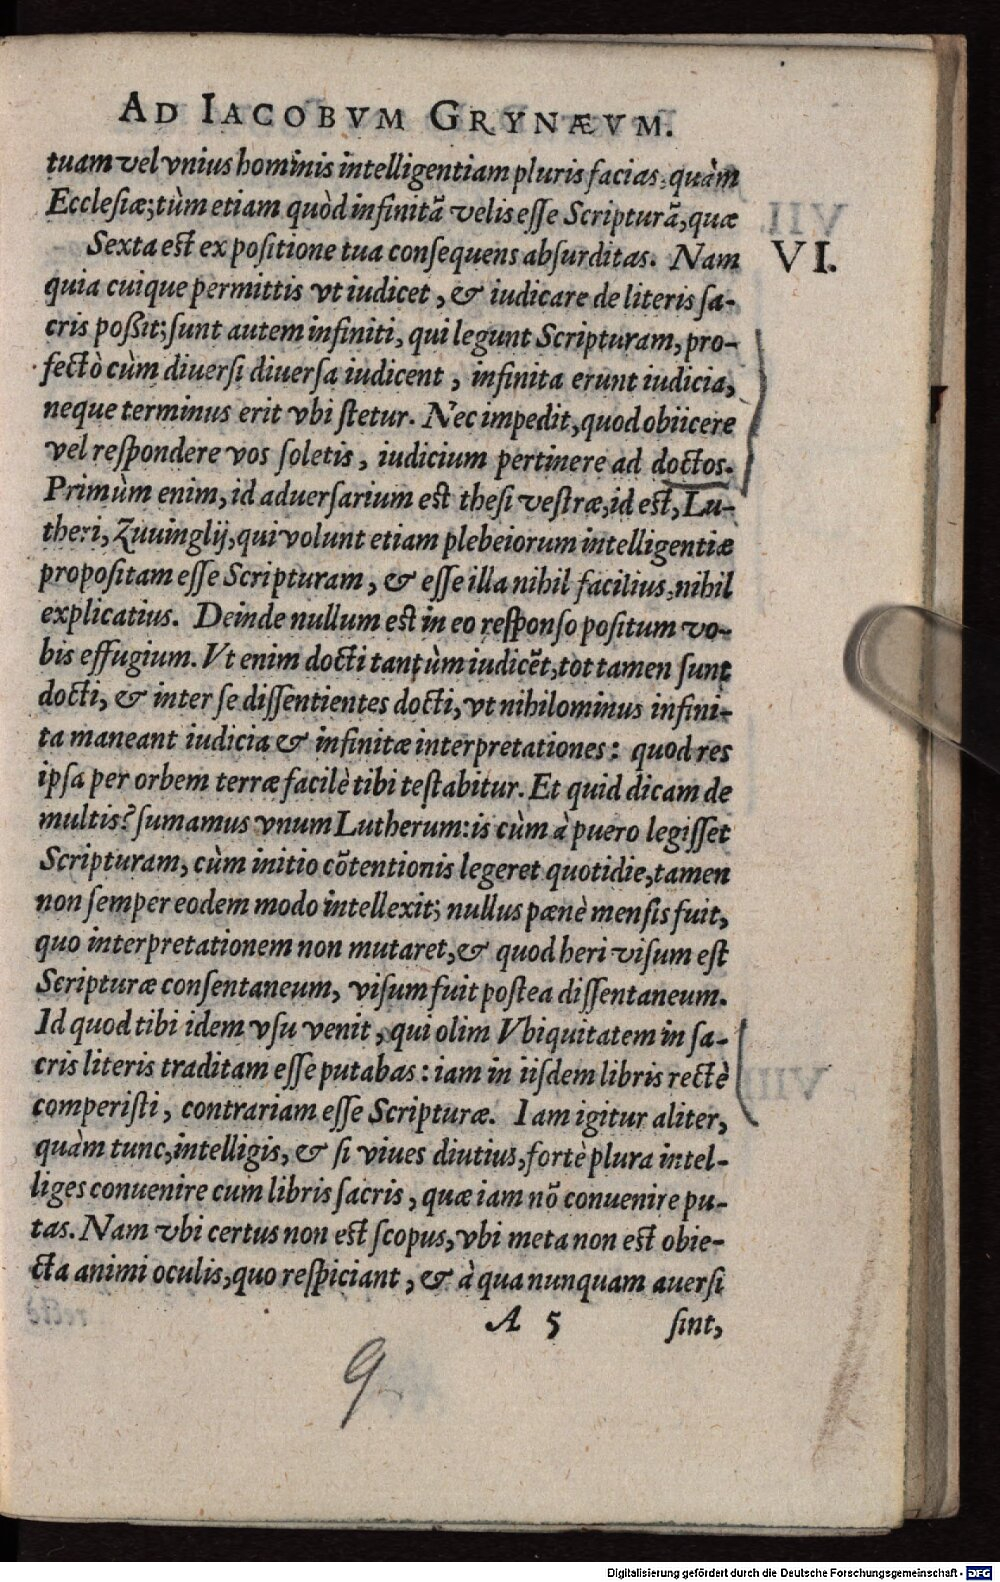 AD IACOBVM GRYNÆVM.
tuam vel vnius hominis intelligentiam pluris facias, quàm
Ecclesiæ; tùm etiam quòd infinitā velis esse Scripturā, quæ
Sexta est ex positione tua consequens absurditas. Nam
VI.
quia cuique permittis vt iudicet, & iudicare de literis sa-
cris poßit; sunt autem infiniti, qui legunt Scripturam, pro-
fectò cùm diuersi diuersa iudicent, infinita erunt iudicia,
neque terminus erit vbi stetur. Nec impedit, quod obiicere
vel respondere vos soletis, iudicium pertinere ad doctos.
Primùm enim, id aduersarium est thesi vestræ, id est, Lu-
theri, Zuuinglij, qui volunt etiam plebeiorum intelligentiæ
propositam esse Scripturam, & esse illa nihil facilius, nihil
explicatius. Deinde nullum est in eo responso positum vo-
bis effugium. Vt enim docti tantùm iudicēt, tot tamen sunt
docti, & inter se dissentientes docti, vt nihilominus infini-
ta maneant iudicia & infinitæ interpretationes: quod res
ipsa per orbem terræ facilè tibi testabitur. Et quid dicam de
multis? sumamus vnum Lutherum: is cùm à puero legisset
Scripturam, cùm initio cōtentionis legeret quotidie, tamen
non semper eodem modo intellexit; nullus pænè mensis fuit,
quo interpretationem non mutaret, & quod heri visum est
Scripturæ consentaneum, visum fuit postea dissentaneum.
Id quod tibi idem vsu venit, qui olim Vbiquitatem in sa-
cris literis traditam esse putabas: iam in iisdem libris rectè
comperisti, contrariam esse Scripturæ. Iam igitur aliter,
quàm tunc, intelligis, & si viues diutius, fortè plura intel-
liges conuenire cum libris sacris, quæ iam nō conuenire pu-
tas. Nam vbi certus non est scopus, vbi meta non est obie-
cta animi oculis, quo respiciant, & à qua nunquam auersi
A 5 sint,
9
Digitalisierung gefördert durch die Deutsche Forschungsgemeinschaft - DFG